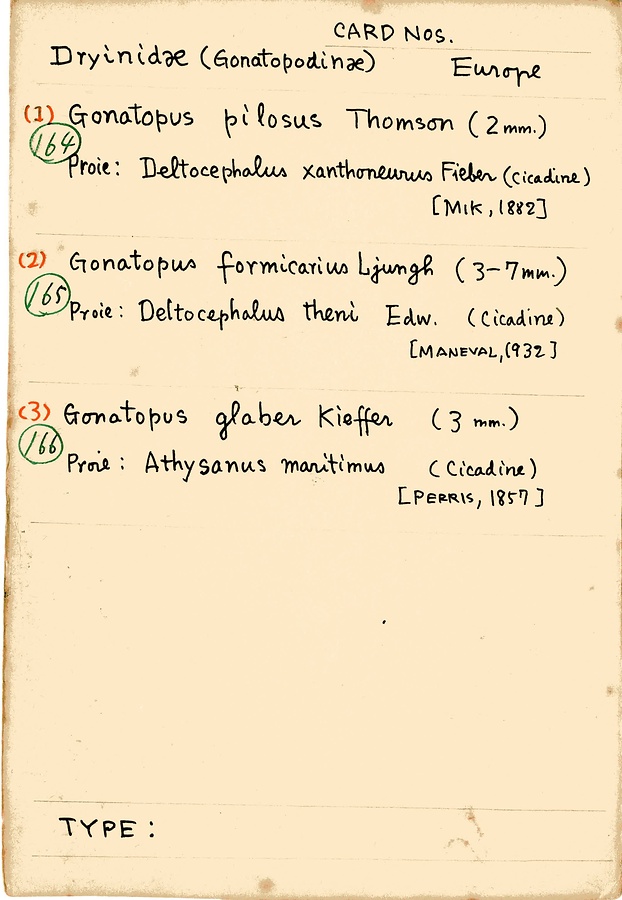 CARD NOS.
Dryinidæ (Gonatopodinæ) Europe
(1) Gonatopus pilosus Thomson (2 mm.)
164
Proie: Deltocephalus xanthoneurus Fieber (Cicadine)
[MIK, 1882]
(2) Gonatopus formicarius Ljungh (3-7mm.)
165
Proie: Deltocephalus theni Edw. (Cicadine)
[MANEVAL, 1932]
(3) Gonatopus glaber Kieffer (3 mm.)
166
Proie: Athysanus maritimus (Cicadine)
[PERRIS, 1857]
TYPE :